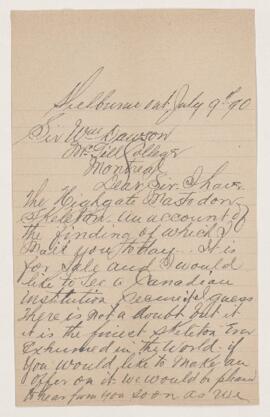 Shelburne Ont July 9th 90
Sir Wm Dawson
McGill College
Montreal
Dear Sir. I have
The Highgate Mastodon
Skeleton. An account of
the finding of which I
Mail you to day. It is
for Sale and I would
like to See a Canadian
institution
There is not a doubt but it
it is the finest Skeleton Ever
Exhumed in the World. if
You Would like to Make an
Offer on it We Would be pleased
to hear from you Soon as We